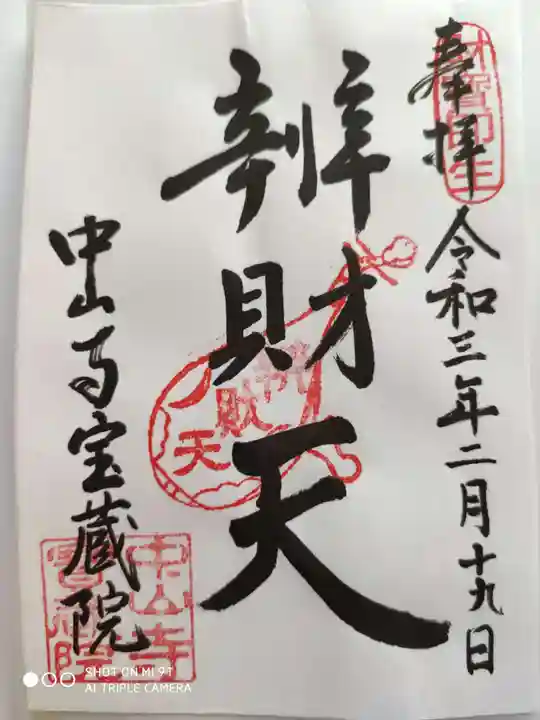 奉拝
令和三年二月十九日
辨財天
辨財天
中山寺宝蔵院
中山寺
寳藏院
SHOT ON MI 9T
AI TRIPLE CAMERA